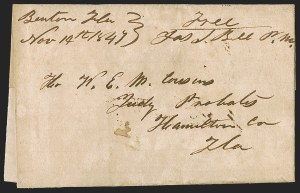 Benton Fla
Nov 14th 1847
Free
Jas. S. Bell P. M.
Ho W. E. M. Cousins
Judg Probates
Hamilton Co
Fla